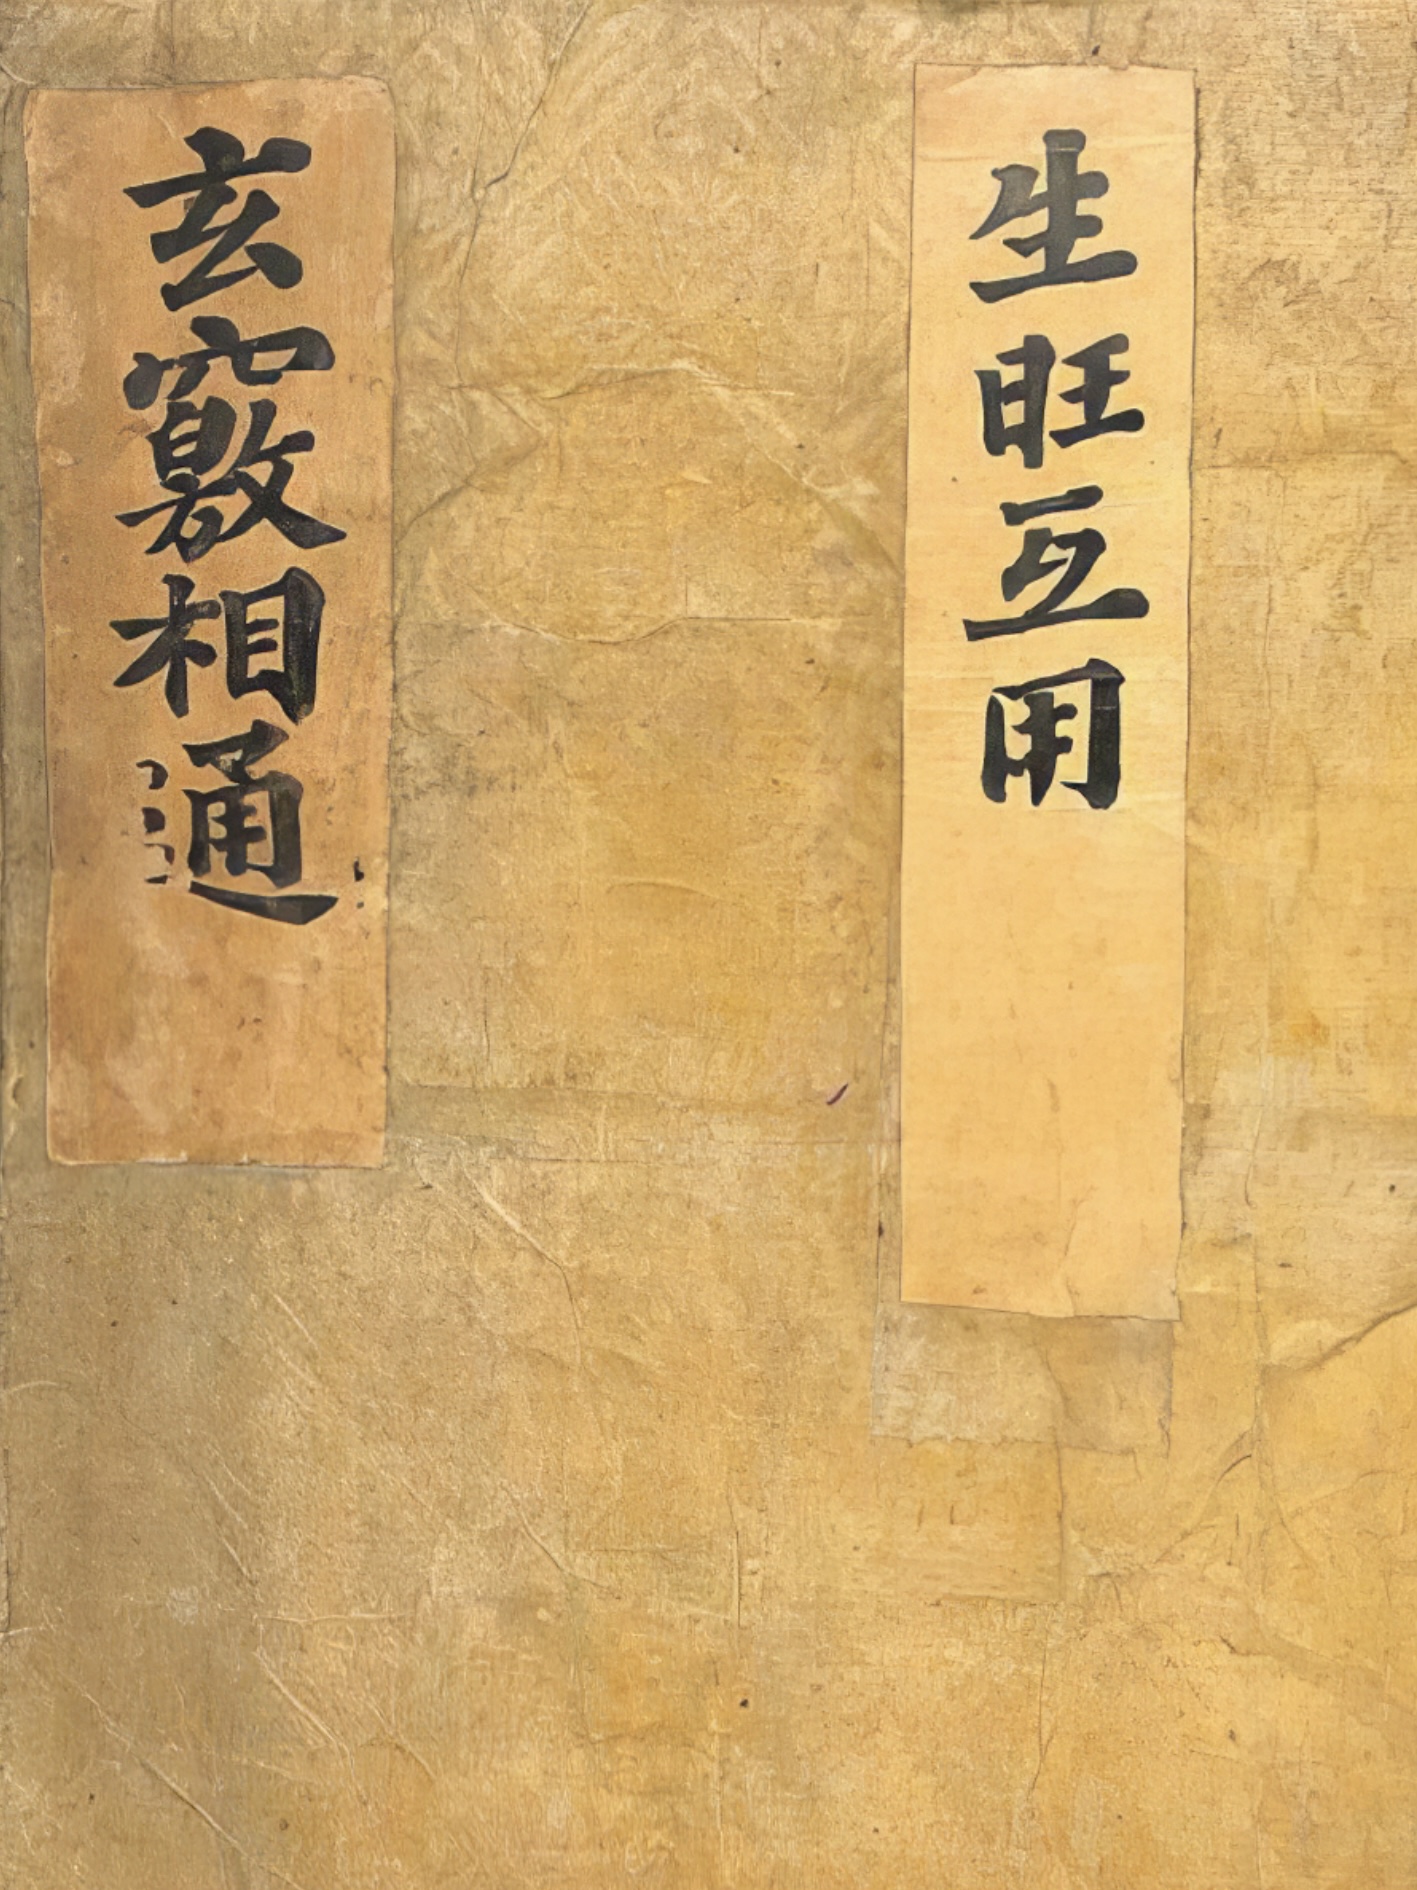 生旺互用
玄竅相通